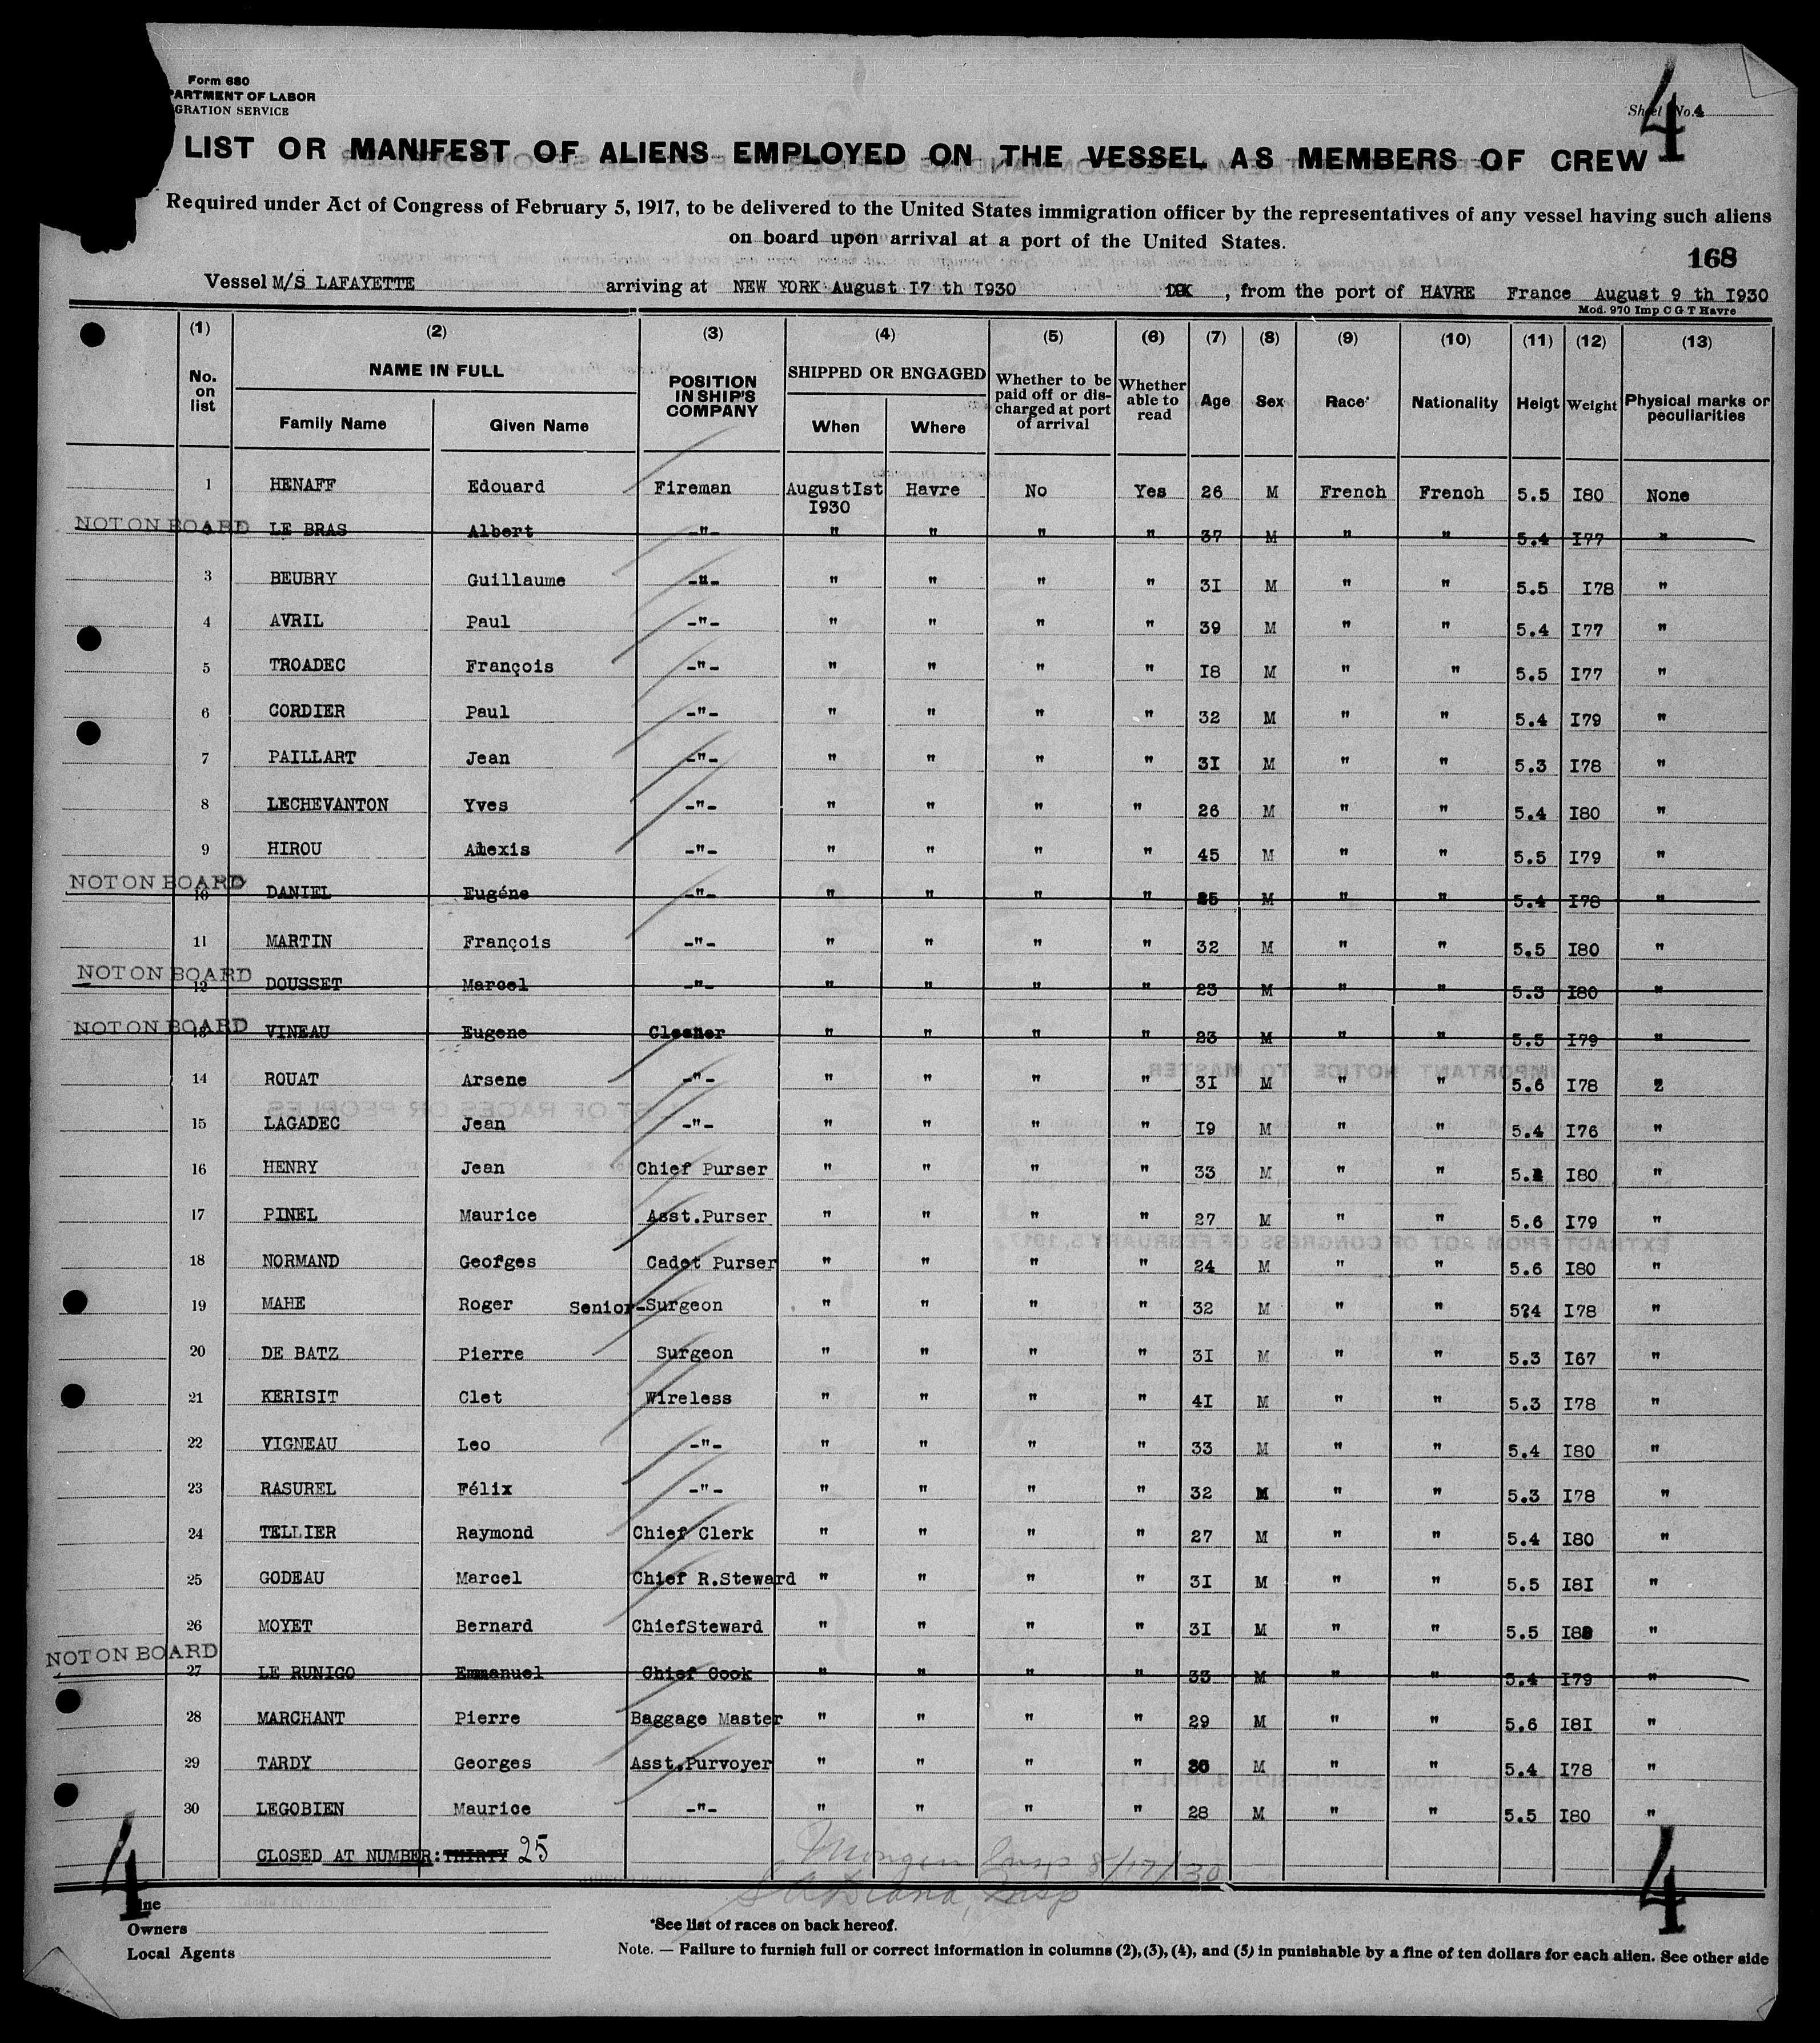 Form 680
PARTMENT OF LABOR
GRATION SERVICE
Sheet No. 4
4
LIST OR MANIFEST OF ALIENS EMPLOYED ON THE VESSEL AS MEMBERS OF CREW
Required under Act of Congress of February 5, 1917, to be delivered to the United States immigration officer by the representatives of any vessel having such aliens
on board upon arrival at a port of the United States.
168
Vessel M/S LAFAYETTE arriving at NEW YORK August I7 th I930 , from the port of HAVRE France August 9 th I930
Mod. 970 Imp C G T Havre
(1) (2) (3) (4) (5) (6) (7) (8) (9) (10) (11) (12) (13)
No. on list NAME IN FULL Family Name Given Name POSITION IN SHIP'S COMPANY SHIPPED OR ENGAGED When Where Whether to be paid off or discharged at port of arrival Whether able to read Age Sex Race* Nationality Heigt Weight Physical marks or peculiarities
1 HENAFF Edouard Fireman August Ist I930 Havre No Yes 26 M French French 5.5 I80 None
NOT ON BOARD LE BRAS Albert -"- " " " " 37 M " " 5.4 I77 "
3 BEUBRY Guillaume -"- " " " " 3I M " " 5.5 I78 "
4 AVRIL Paul -"- " " " " 39 M " " 5.4 I77 "
5 TROADEC François -"- " " " " I8 M " " 5.5 I77 "
6 CORDIER Paul -"- " " " " 32 M " " 5.4 I79 "
7 PAILLART Jean -"- " " " " 3I M " " 5.3 I78 "
8 LECHEVANTON Yves -"- " " " " 26 M " " 5.4 I80 "
9 HIROU Alexis -"- " " " " 45 M " " 5.5 I79 "
NOT ON BOARD 10 DANIEL Eugéne -"- " " " " M " " 5.4 I78 "
11 MARTIN François -"- " " " " 32 M " " 5.5 I80 "
NOT ON BOARD 12 DOUSSET Marcel -"- " " " " 23 M " " 5.3 I80 "
NOT ON BOARD 13 VINEAU Eugene Cleaner " " " " 23 M " " 5.5 I79 "
14 ROUAT Arsene -"- " " " " 3I M " " 5.6 I78
15 LAGADEC Jean -"- " " " " I9 M " " 5.4 I76 "
16 HENRY Jean Chief Purser " " " " 33 M " " I80 "
17 PINEL Maurice Asst.Purser " " " " 27 M " " 5.6 I79 "
18 NORMAND Georges Cadet Purser " " " " 24 M " " 5.6 I80 "
19 MAHE Roger Senior-Surgeon " " " " 32 M " " 5?4 I78 "
20 DE BATZ Pierre Surgeon " " " " 3I M " " 5.3 I67 "
21 KERISIT Clet Wireless " " " " 4I M " " 5.3 I78 "
22 VIGNEAU Leo -"- " " " " 33 M " " 5.4 I80 "
23 RASUREL Félix -"- " " " " 32 M " " 5.3 I78 "
24 TELLIER Raymond Chief Clerk " " " " 27 M " " 5.4 I80 "
25 GODEAU Marcel Chief R.Steward " " " " 3I M " " 5.5 I8I "
26 MOYET Bernard ChiefSteward " " " " 3I M " " 5.5 "
NOT ON BOARD 27 LE RUNIGO Emmanuel Chief Cook " " " " 33 M " " 5.4 I79 "
28 MARCHANT Pierre Baggage Master " " " " 29 M " " 5.6 I8I "
29 TARDY Georges Asst.Purvoyer " " " " M " " 5.4 I78 "
30 LEGOBIEN Maurice -"- " " " " 28 M " " 5.5 I80 "
CLOSED AT NUMBER: THIRTY 25
Insp 8/17/30
Insp
4
4
ine
Owners
Local Agents
*See list of races on back hereof.
Note. — Failure to furnish full or correct information in columns (2),(3),(4), and (5) in punishable by a fine of ten dollars for each alien. See other side